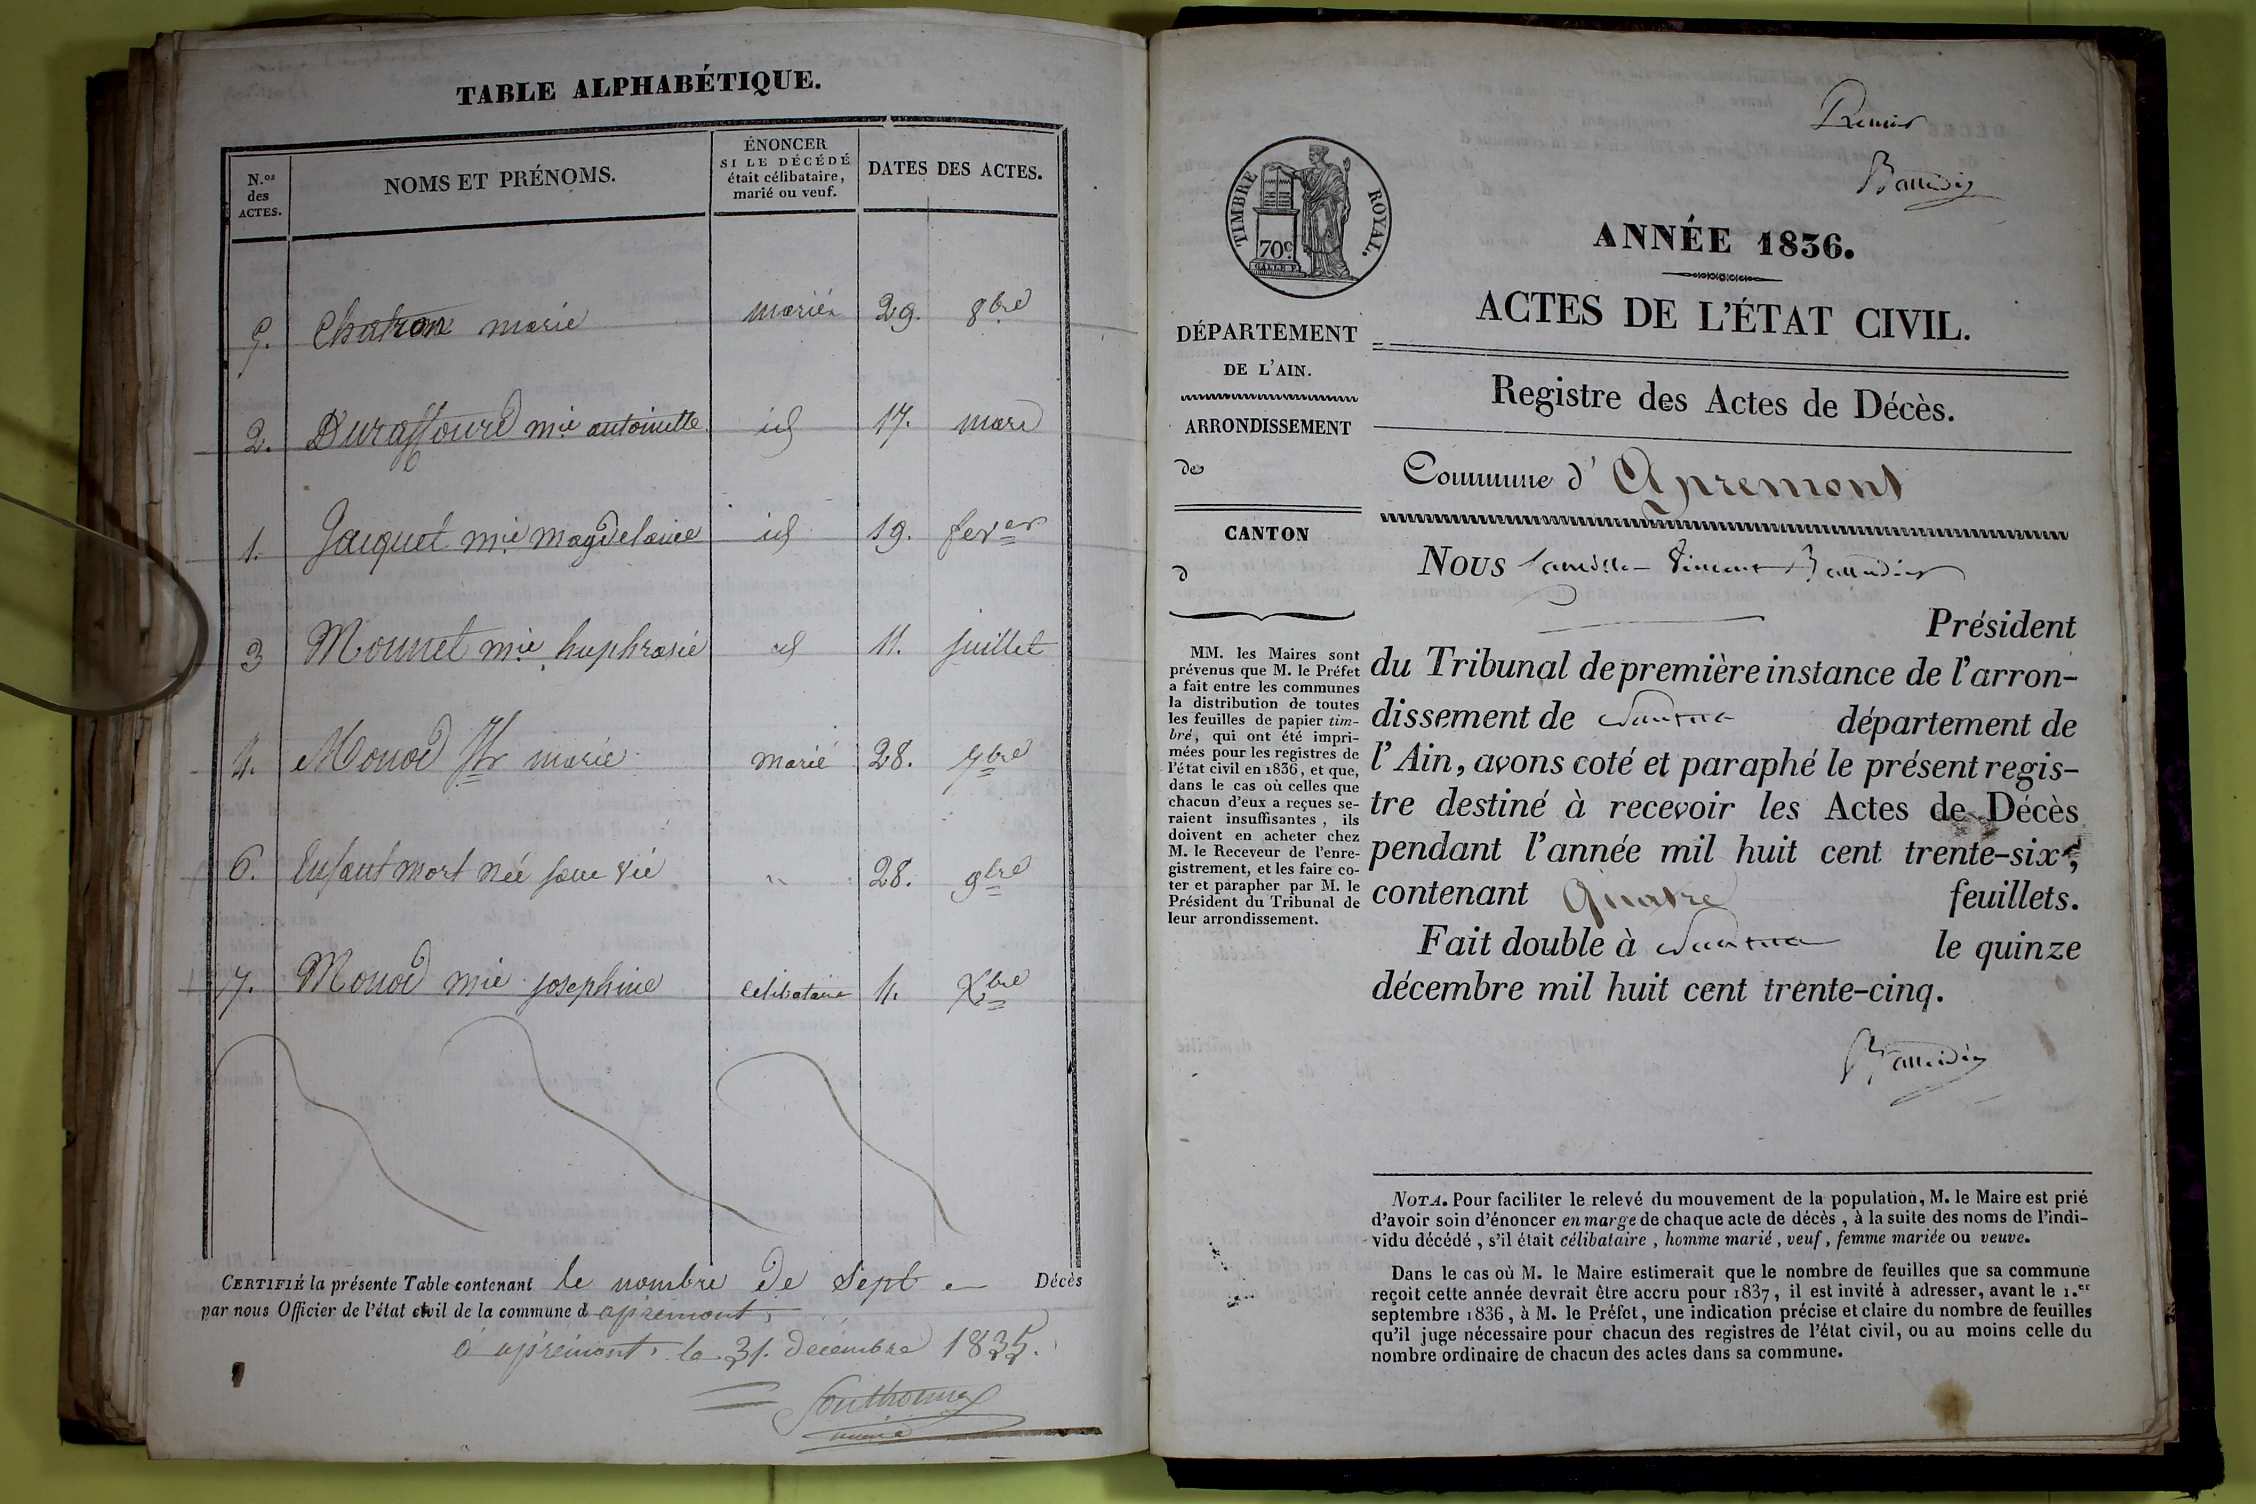 TABLE ALPHABÉTIQUE.
N.os des ACTES.
NOMS ET PRÉNOMS.
ÉNONCER
SI LE DÉCÉDÉ
était célibataire,
marié ou veuf.
DATES DES ACTES.
5. Chatron marie mariée 29. 8bre
2. Duraffourd mie antoinette id 17. mars
1. Jacquet mie magdelaine id 19. fever
3 Monnet mie huphrasie id 11. juillet
4. Monod Jh marie marié 28. 7bre
6. Enfant mort née sans vie " 28. 9bre
7. Monod mie josephine célibataire 4. Xbre
CERTIFIÉ la présente Table contenant le nombre de sept Décès
par nous Officier de l'état civil de la commune d apremont,
à apremont, le 31. décembre 1835.
maire
Premier
TIMBRE ROYAL.
70c
GALLE F.
ANNÉE 1836.
ACTES DE L'ÉTAT CIVIL.
DÉPARTEMENT
DE L'AIN.
ARRONDISSEMENT
de
CANTON
d
MM. les Maires sont
prévenus que M. le Préfet
a fait entre les communes
la distribution de toutes
les feuilles de papier tim-
bré, qui ont été impri-
mées pour les registres de
l'état civil en 1836, et que,
dans le cas où celles que
chacun d'eux a reçues se-
raient insuffisantes, ils
doivent en acheter chez
M. le Receveur de l'enre-
gistrement, et les faire co-
ter et parapher par M. le
Président du Tribunal de
leur arrondissement.
Registre des Actes de Décès.
Commune d'Apremont
Nous Vincent
Président
du Tribunal de première instance de l'arron-
dissement de Nantua département de
l'Ain, avons coté et paraphé le présent regis-
tre destiné à recevoir les Actes de Décès
pendant l'année mil huit cent trente-six,
contenant quatre feuillets.
Fait double à Nantua le quinze
décembre mil huit cent trente-cinq.
NOTA. Pour faciliter le relevé du mouvement de la population, M. le Maire est prié
d'avoir soin d'énoncer en marge de chaque acte de décès, à la suite des noms de l'indi-
vidu décédé, s'il était célibataire, homme marié, veuf, femme mariée ou veuve.
Dans le cas où M. le Maire estimerait que le nombre de feuilles que sa commune
reçoit cette année devrait être accru pour 1837, il est invité à adresser, avant le 1.er
septembre 1836, à M. le Préfet, une indication précise et claire du nombre de feuilles
qu'il juge nécessaire pour chacun des registres de l'état civil, ou au moins celle du
nombre ordinaire de chacun des actes dans sa commune.